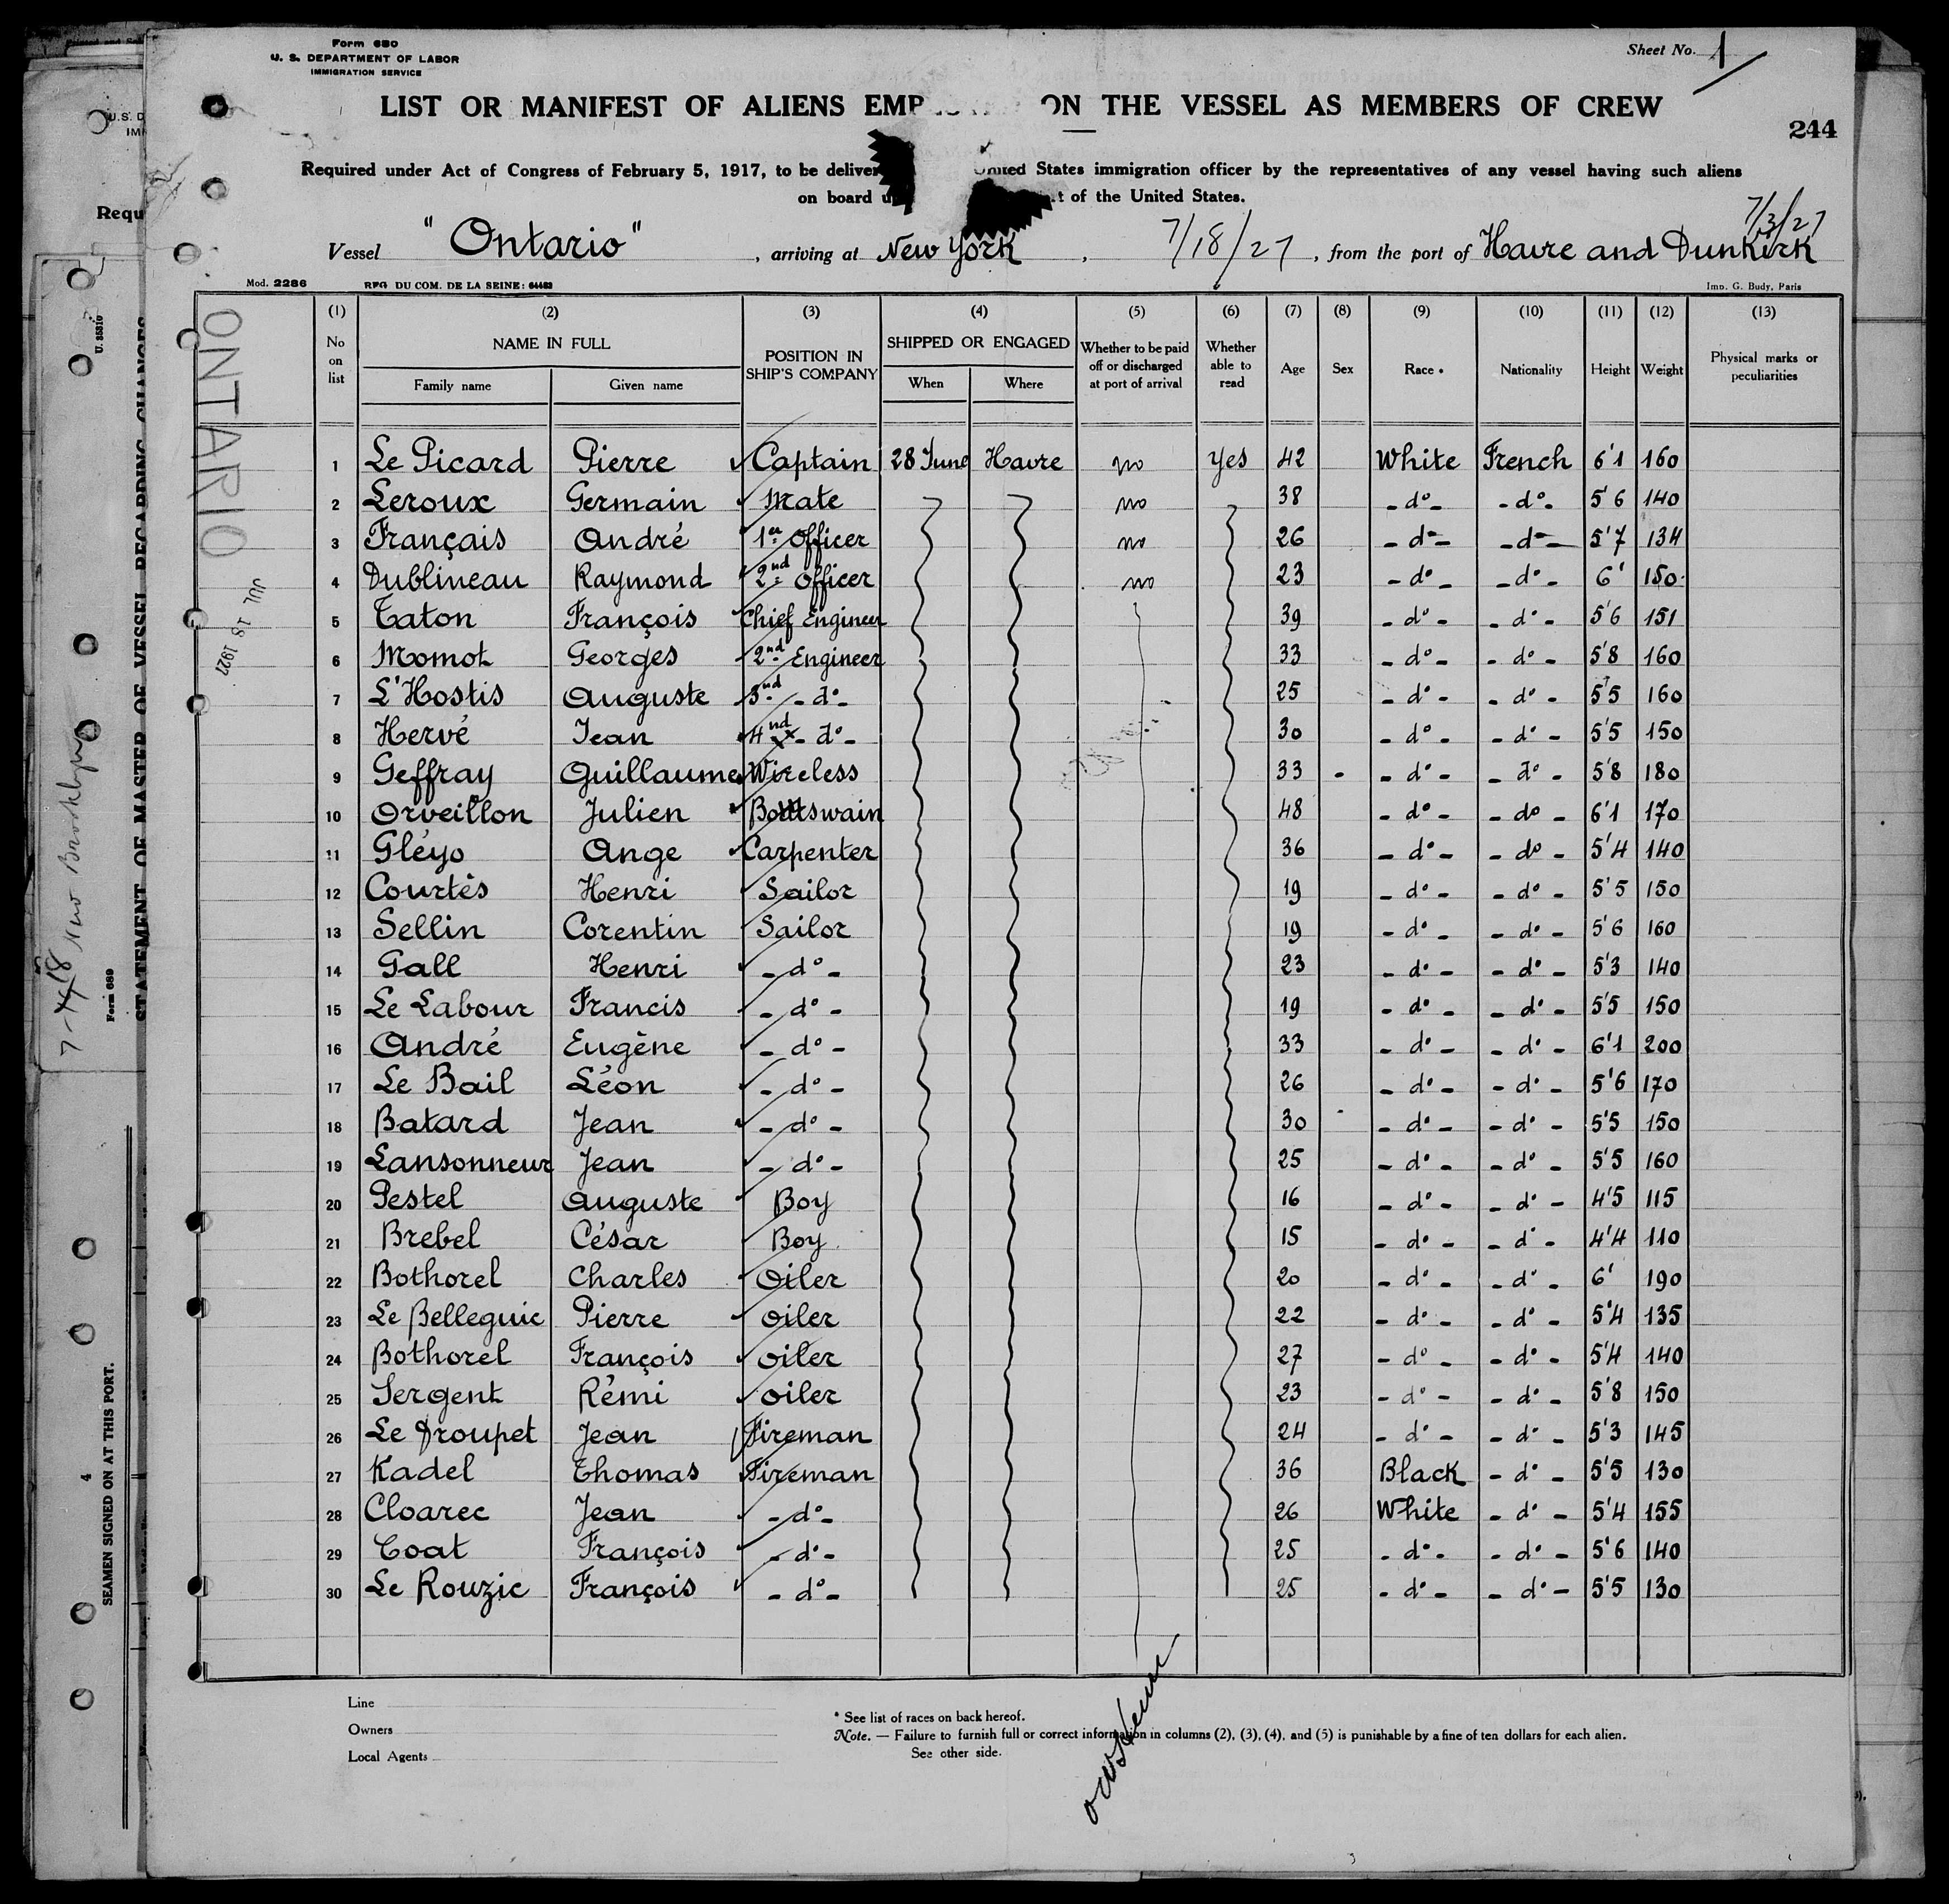 Form 680
U. S. DEPARTMENT OF LABOR
IMMIGRATION SERVICE
Sheet No. 1
LIST OR MANIFEST OF ALIENS EMP ON THE VESSEL AS MEMBERS OF CREW
244
Required under Act of Congress of February 5, 1917, to be deliver United States immigration officer by the representatives of any vessel having such aliens
on board u t of the United States.
7/3/27
Vessel "Ontario", arriving at New York, 7/18/27, from the port of Havre and Dunkirk
Mod. 2286 REG DU COM. DE LA SEINE: 64483 Imp. G. Budy, Paris
(1) (2) (3) (4) (5) (6) (7) (8) (9) (10) (11) (12) (13)
No on list NAME IN FULL Family name Given name POSITION IN SHIP'S COMPANY SHIPPED OR ENGAGED When Where Whether to be paid off or discharged at port of arrival Whether able to read Age Sex Race * Nationality Height Weight Physical marks or peculiarities
1 Le Picard Pierre Captain 28 June Havre no Yes 42 White French 6'1 160
2 Leroux Germain Mate no 38 - do - - do - 5'6 140
3 Français André 1er Officer no 26 - do - - do - 5'7 134
4 Dublineau Raymond 2nd Officer no 23 - do - - do - 6' 150
5 Taton François Chief Engineer 39 - do - - do - 5'6 151
6 Momot Georges 2nd Engineer 33 - do - - do - 5'8 160
7 L'Hostis Auguste 3nd - do - 25 - do - - do - 5'5 160
8 Hervé Jean 4nd - do - 30 - do - - do - 5'5 150
9 Geffray Guillaume Wireless 33 - do - - do - 5'8 180
10 Orveillon Julien Bottswain 48 - do - - do - 6'1 170
11 Gléyo Ange Carpenter 36 - do - - do - 5'4 140
12 Courtès Henri Sailor 19 - do - - do - 5'5 150
13 Sellin Corentin Sailor 19 - do - - do - 5'6 160
14 Gall Henri - do - 23 - do - - do - 5'3 140
15 Le Labour Francis - do - 19 - do - - do - 5'5 150
16 André Eugène - do - 33 - do - - do - 6'1 200
17 Le Bail Léon - do - 26 - do - - do - 5'6 170
18 Batard Jean - do - 30 - do - - do - 5'5 150
19 Lansonneur Jean - do - 25 - do - - do - 5'5 160
20 Pestel Auguste Boy 16 - do - - do - 4'5 115
21 Brebel César Boy 15 - do - - do - 4'4 110
22 Bothorel Charles Oiler 20 - do - - do - 6' 190
23 Le Belleguic Pierre Oiler 22 - do - - do - 5'4 135
24 Bothorel François Oiler 27 - do - - do - 5'4 140
25 Sergent Rémi Oiler 23 - do - - do - 5'8 150
26 Le Troupet Jean Fireman 24 - do - - do - 5'3 145
27 Kadel Thomas Fireman 36 Black - do - 5'5 130
28 Cloarec Jean - do - 26 White - do - 5'4 155
29 Coat François - do - 25 - do - - do - 5'6 140
30 Le Rouzic François - do - 25 - do - - do - 5'5 130
Line
Owners
Local Agents
* See list of races on back hereof.
Note. — Failure to furnish full or correct information in columns (2), (3), (4), and (5) is punishable by a fine of ten dollars for each alien.
See other side.
ONTARIO
JUL 18 1927
Requ
U. 35310
STATEMENT OF MASTER OF VESSEL REGARDING CHANGES
7-18 New Brooklyn
Form 689
SEAMEN SIGNED ON AT THIS PORT.
4